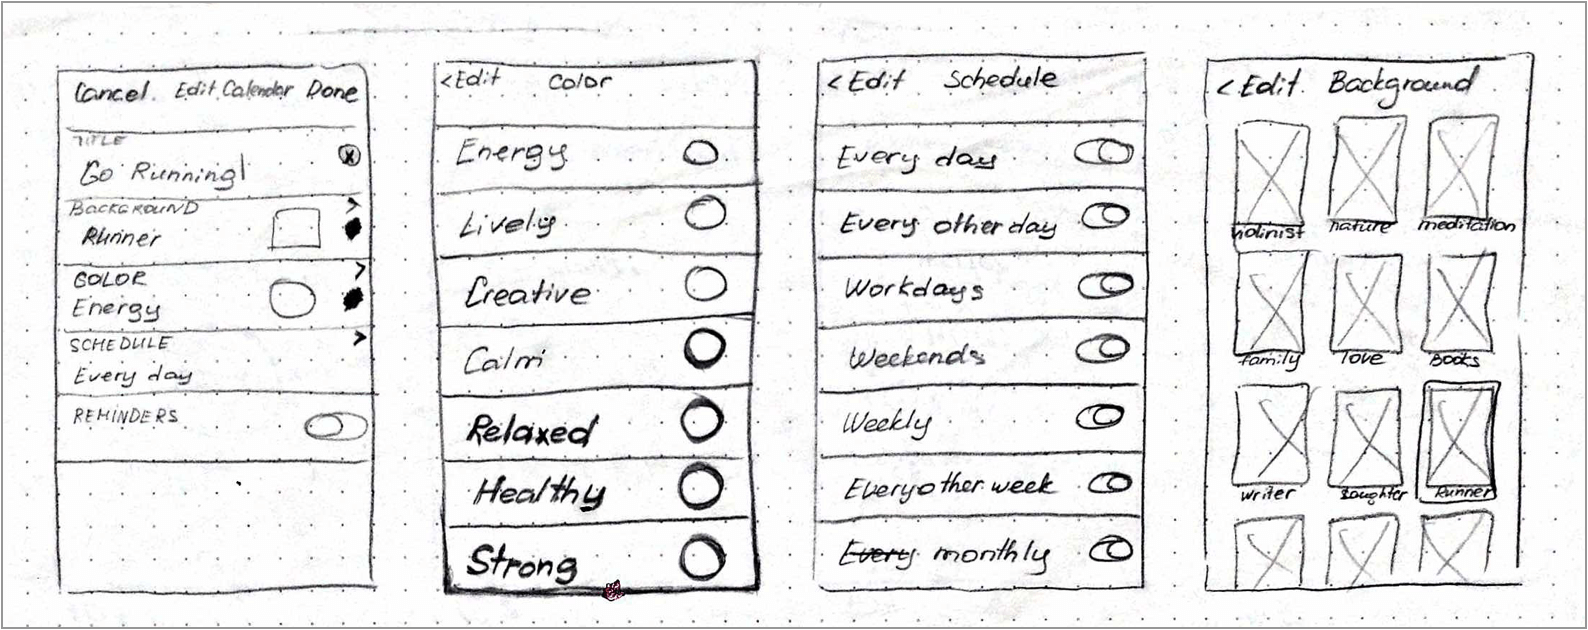 Cancel. Edit Calender Done
TITLE
Go Running
BACKGROUND >
Runner
COLOR >
Energy
SCHEDULE >
Every day
REMINDERS
<Edit Color
Energy
Lively
Creative
Calm
Relaxed
Healthy
Strong
<Edit Schedule
Every day
Every other day
Workdays
Weekends
Weekly
Every other week
Every monthly
<Edit. Background
violinist nature meditation
family love Books
writer Daughter Runner